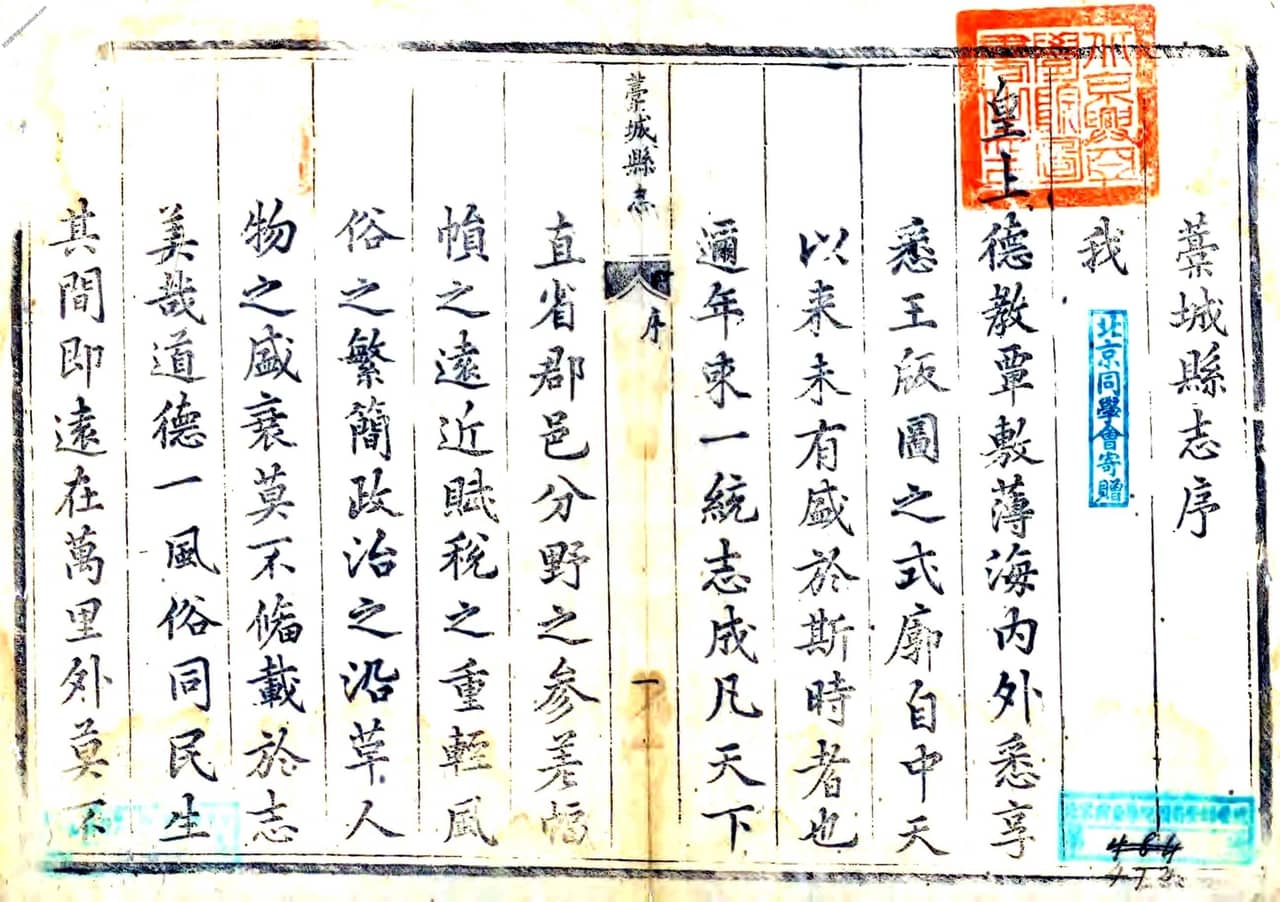 藁城縣志序
我
北京同學會寄贈
皇上德教覃敷薄海內外悉享
悉王版圖之式廓自中天
以来未有盛於斯時者也
邇年來一統志成凡天下
藁城縣志
序
一
直省郡邑分野之参差幅
幀之遠近賦稅之重輕風
俗之繁簡政治之沿革人
物之盛衰莫不備載於志
美哉道德一風俗同民生
其間即遠在萬里外莫不
464